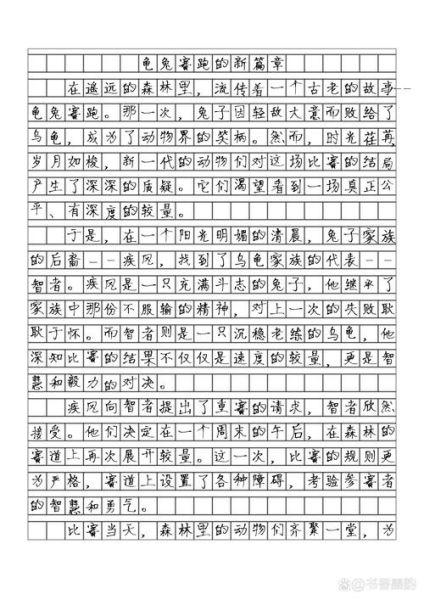 龟兔赛跑的新篇章
在遥远的森林里，流传着一个古老的故事——
龟兔赛跑。那一次，兔子因轻敌大意而败给了
乌龟，成为了动物界的笑柄。然而，时光荏苒，
岁月如梭，新一代的动物们对这场比赛的结局
产生了深深的质疑。它们渴望看到一场真正公
平、有深度的较量。
于是，在一个阳光明媚的清晨，兔子家族
的后裔——疾风，找到了乌龟家族的代表——
智者。疾风是一只充满斗志的兔子，他继承了
家族中那份不服输的精神，对上一次的失败耿
耿于怀。而智者则是一只沉稳老练的乌龟，他
深知比赛的结果不仅仅是速度的较量，更是智
慧和毅力的对决。
疾风向智者提出了重赛的请求，智者欣然
接受。他们决定在一个周末的午后，在森林的
赛道上再次展开较量。这一次，比赛的规则更
为严格，赛道上设置了各种障碍，考验参赛者
的智慧和勇气。
比赛当天，森林里的动物们齐聚一堂，为